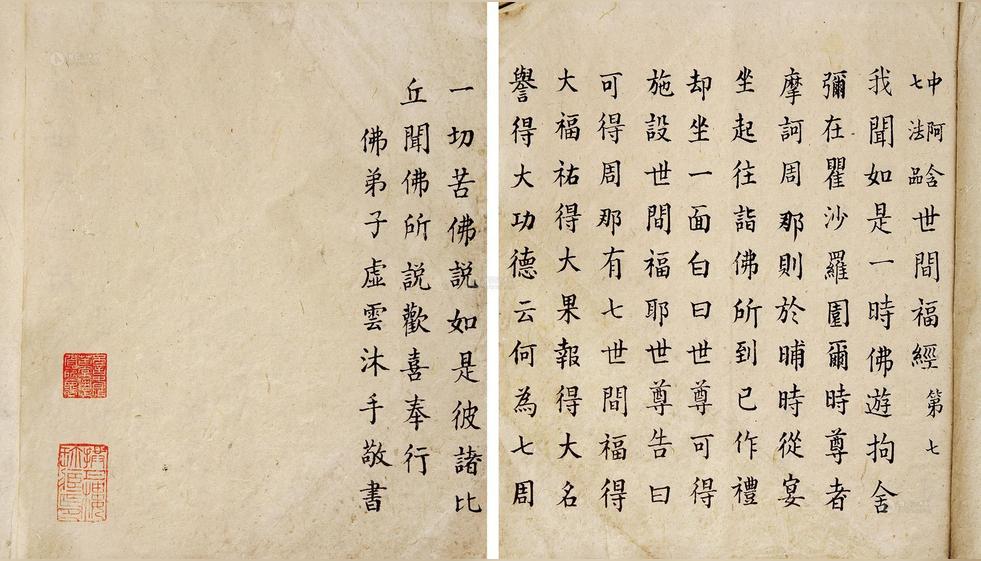 中阿含
七法品
世間福經 第七
我聞如是一時佛遊拘舍
彌在瞿沙羅園爾時尊者
摩訶周那則於晡時從宴
坐起往詣佛所到已作禮
却坐一面白曰世尊可得
施設世間福耶世尊告曰
可得周那有七世間福得
大福祐得大果報得大名
譽得大功德云何為七周
一切苦佛說如是彼諸比
丘聞佛所說歡喜奉行
佛弟子虛雲沐手敬書